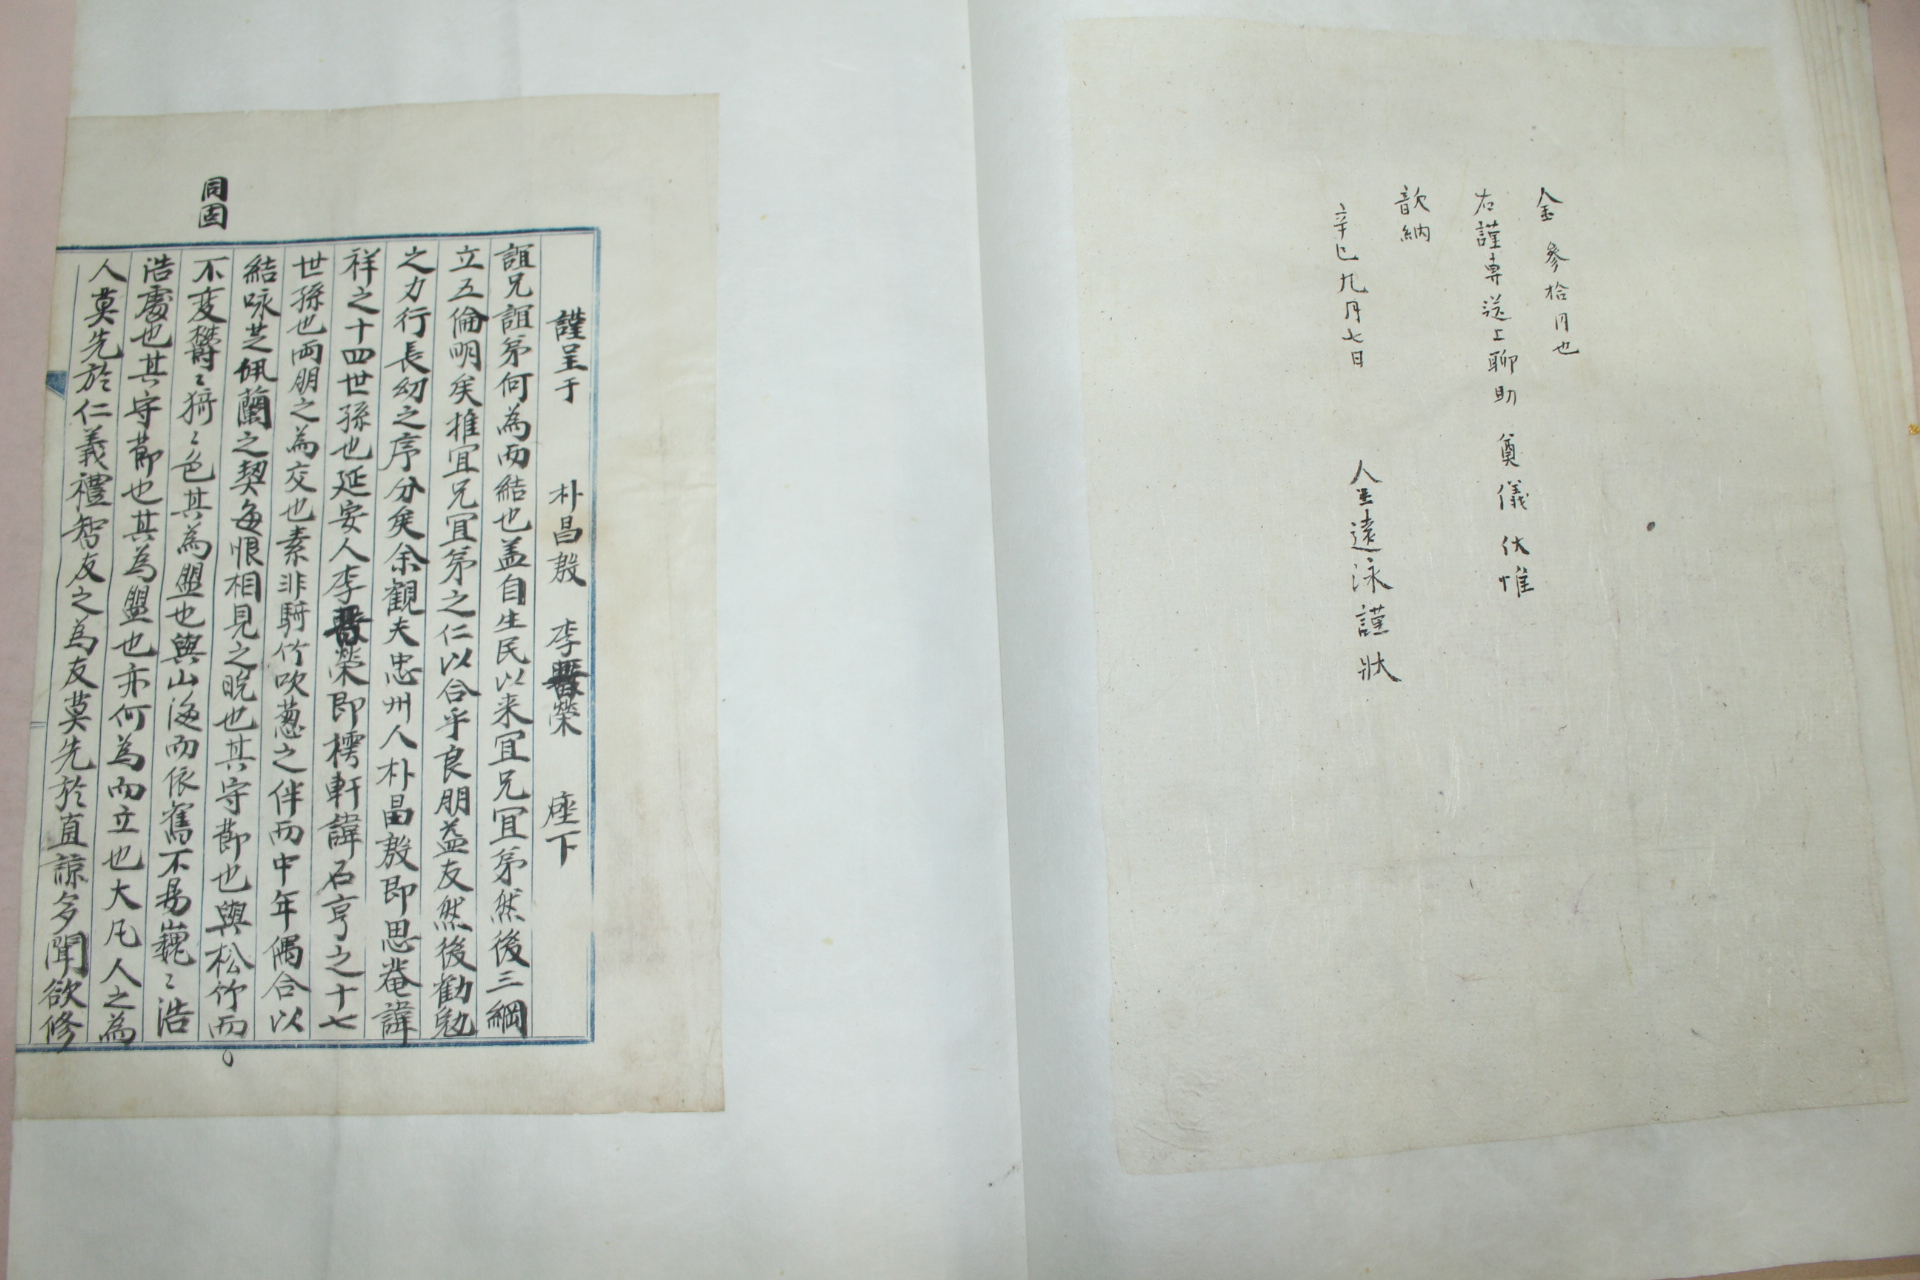 金 參拾円也
右謹專送上聊助 奠儀伏惟
歆納
辛巳九月七日 人 遠泳謹狀
謹呈于 朴昌殷 李 榮 座下
誼兄誼弟何為而結也盖自生民以来冝兄冝弟然後三綱
立五倫明矣推冝兄冝弟之仁以合乎良朋益友然後勸勉
之力行長幼之序分矣余觀夫忠州人朴昌殷即思菴諱
祥之十四世孫也延安人李 榮即樗軒諱石亨之十七
世孫也両朋之為交也素非騎竹吹葱之伴而中年偶合以
結咏芝佩蘭之契每恨相見之晩也其守節也與松竹而
不变欝〻猗〻色其為盟也與山海而依舊不易巍〻浩
同固
浩處也其守節也其為盟也亦何為而立也大凡人之為
人莫先於仁義禮智友之為友莫先於直諒多聞欲修